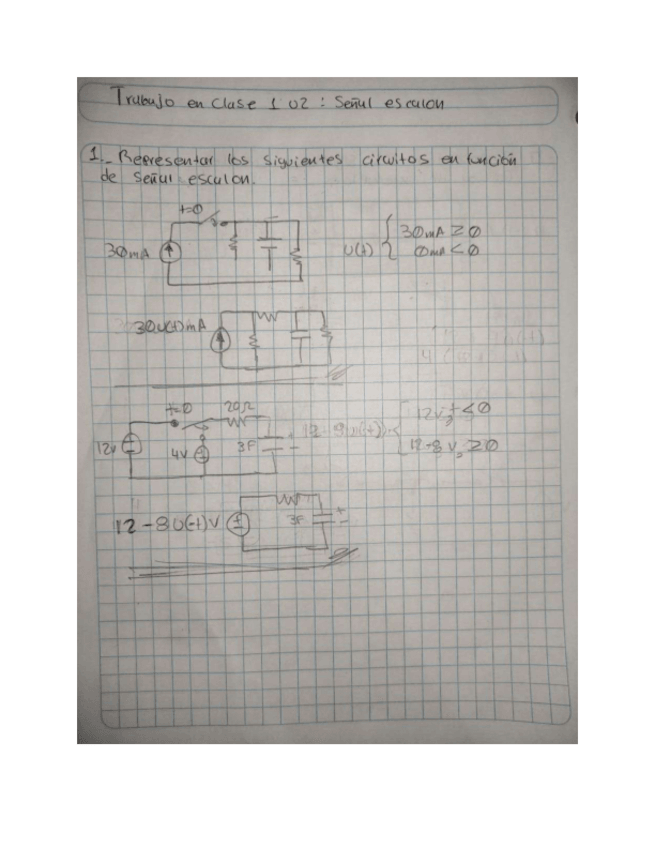 Trabajo en Clase 1 U2 : Señal escalon
1.- Representar los siguientes circuitos en función
de señal escalon.
t=0
30mA
U(t) { 30mA ≥ 0
0mA < 0
30U(t)mA
t=0 20Ω
12V 4V 3F + -
12 - 8u(t)
12V, t < 0
12-8 V, ≥ 0
12 - 8U(-1)V 3F + -